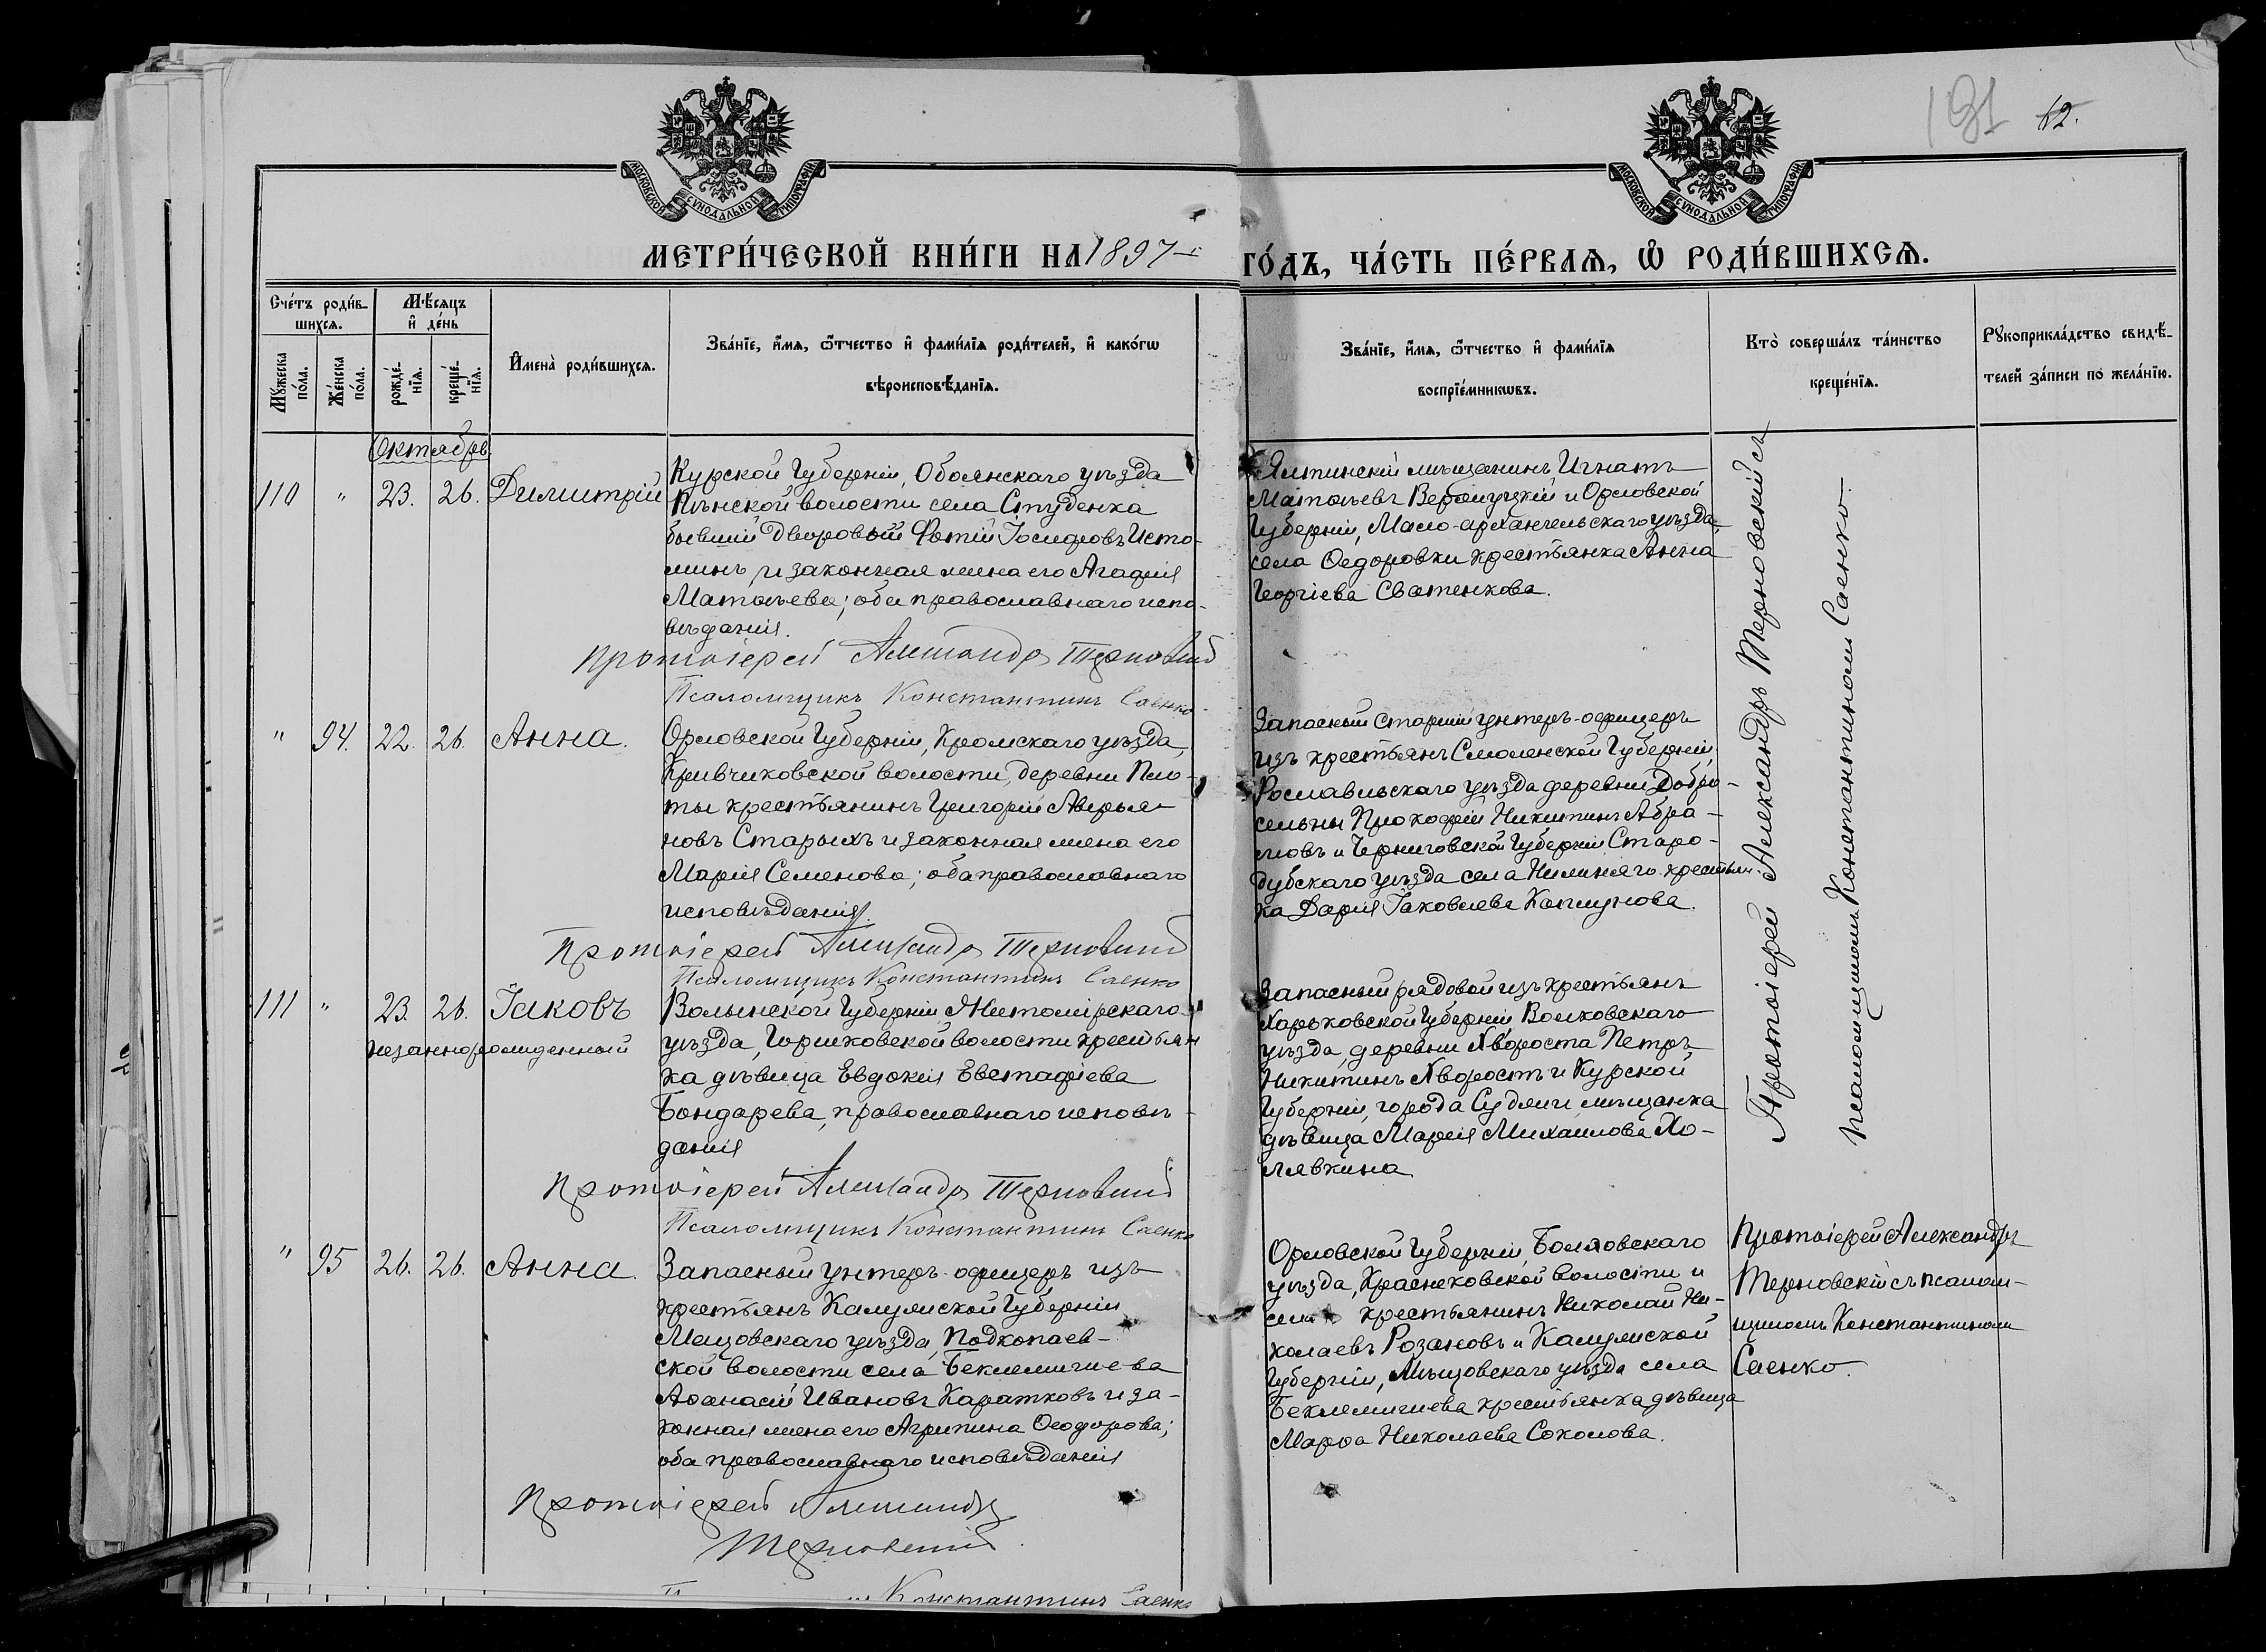 191 62.
МОСКОВСКОЙ СѴНОДАЛЬНОЙ ТИПОГРАФІИ
МОСКОВСКОЙ СѴНОДАЛЬНОЙ ТИПОГРАФІИ
МЕТРИ́ЧЕСКОЙ КНИ́ГИ НА 1897-й
ГО́ДЪ, ЧА́СТЬ ПЕ́РВАѦ, Ѽ РОДИ́ВШИХСѦ.
Сче́тъ роди́в-
шихсѧ.
Мѣ́сѧцъ
и҆ де́нь
Мꙋ́жеска
по́ла.
Же́нска
по́ла.
рожде́-
нїѧ.
креще́-
нїѧ.
И҆мена̀ роди́вшихсѧ.
Зва́нїе, и҆́мѧ, ѻ҆́тчество и҆ фами́лїѧ роди́телей, и҆ како́гѡ
вѣроисповѣ́данїѧ.
Зва́нїе, и҆́мѧ, ѻ҆́тчество и҆ фами́лїѧ
воспрїе́мникѡвъ.
Кто̀ соверша́лъ та́инство
креще́нїѧ.
Рꙋкоприкла́дство свидѣ́-
телей за́писи по жела́нїю.
Октябрь
110 " 23. 26. Димитрій
Курской Губерніи, Обоянскаго уѣзда
волости села Студенка
бывшій дворовый Фотій Іосифовъ Исто-
минъ, и законная жена его Агафія
Матѳѣева; оба православнаго испо-
вѣданія.
Протоіерей Александръ Терновскій
Псаломщикъ Константинъ Саенко
Ялтинскій мѣщанинъ Игнатъ
Матѳѣевъ и Орловской
Губерніи, Мало-архангельскаго уѣзда,
села Ѳедоровки крестьянка Анна
Георгіева Сватенкова.
" 94. 22. 26. Анна.
Орловской Губерніи, Кромскаго уѣзда,
Кривчиковской волости, деревни Пло-
ты крестьянинъ Григорій Аверья-
новъ Старыхъ и законная жена его
Марія Семенова; оба православнаго
исповѣданія.
Протоіерей Александръ Терновскій
Псаломщикъ Константинъ Саенко
Запасный старшій унтеръ-офицеръ
изъ крестьянъ Смоленской Губерніи,
Рославльскаго уѣзда деревни Добро-
сельны Прокофій Никитинъ Абра-
мовъ и Черниговской Губерніи Старо-
дубскаго уѣзда села крестьян-
ка Дарія Іаковлева Каплунова.
111 " 23. 26. Іаковъ
незаннорожденный
Волынской Губерніи Житомірскаго
уѣзда, Горшковской волости крестьян
ка дѣвица Евдокія Евстафіева
Бондарева, православнаго исповѣ-
данія
Протоіерей Александръ Терновскій
Псаломщикъ Константинъ Саенко
Запасный рядовой изъ крестьянъ
Харьковской Губерніи Волковскаго
уѣзда, деревни Хвороста Петръ
Никитинъ Хворостъ и Курской
Губерніи, города Суджи мѣщанка
дѣвица Марія Михаилова Хо-
лявкина
Протоіерей Александръ Терновскій съ
псаломщикомъ Константиномъ Саенко.
" 95 26. 26. Анна.
Запасный унтеръ-офицеръ изъ
крестьянъ Калужской Губерніи
Мещовскаго уѣзда, Подкопаев-
ской волости села Беклемишева
Аѳанасій Ивановъ Каратковъ и за-
конная жена его Агрипина Ѳеодорова;
оба православнаго исповѣданія
Протоіерей Александръ
Терновскій
Константинъ Саенко
Орловской Губерніи, Болховскаго
уѣзда, волости и
села крестьянинъ Николай Ни-
колаевъ Розановъ и Калужской
Губерніи, Мѣщовскаго уѣзда села
Беклемишева крестьянка дѣвица
Марѳа Николаева Соколова.
Протоіерей Александръ
Терновскій съ псалом-
щикомъ Константиномъ
Саенко.